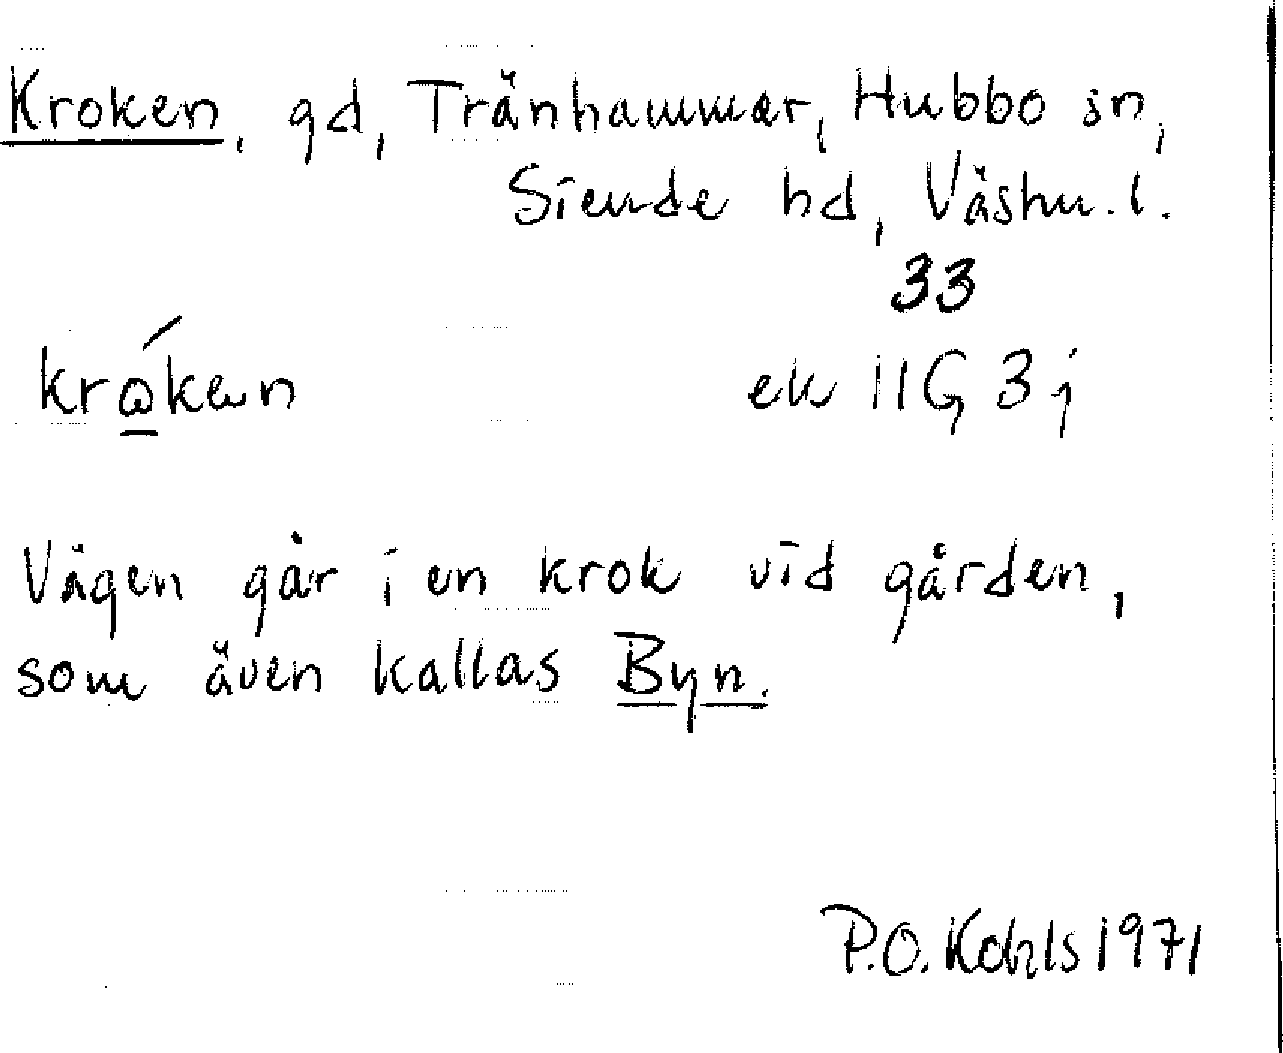 Kroken, gd, Tränhammar, Hubbo sn,
Siende hd, Västm. l.
33
krǫ̱́kən
ek 11G 3j
Vägen går i en krok vid gården,
som även kallas Byn.
P.O. Kohls 1971